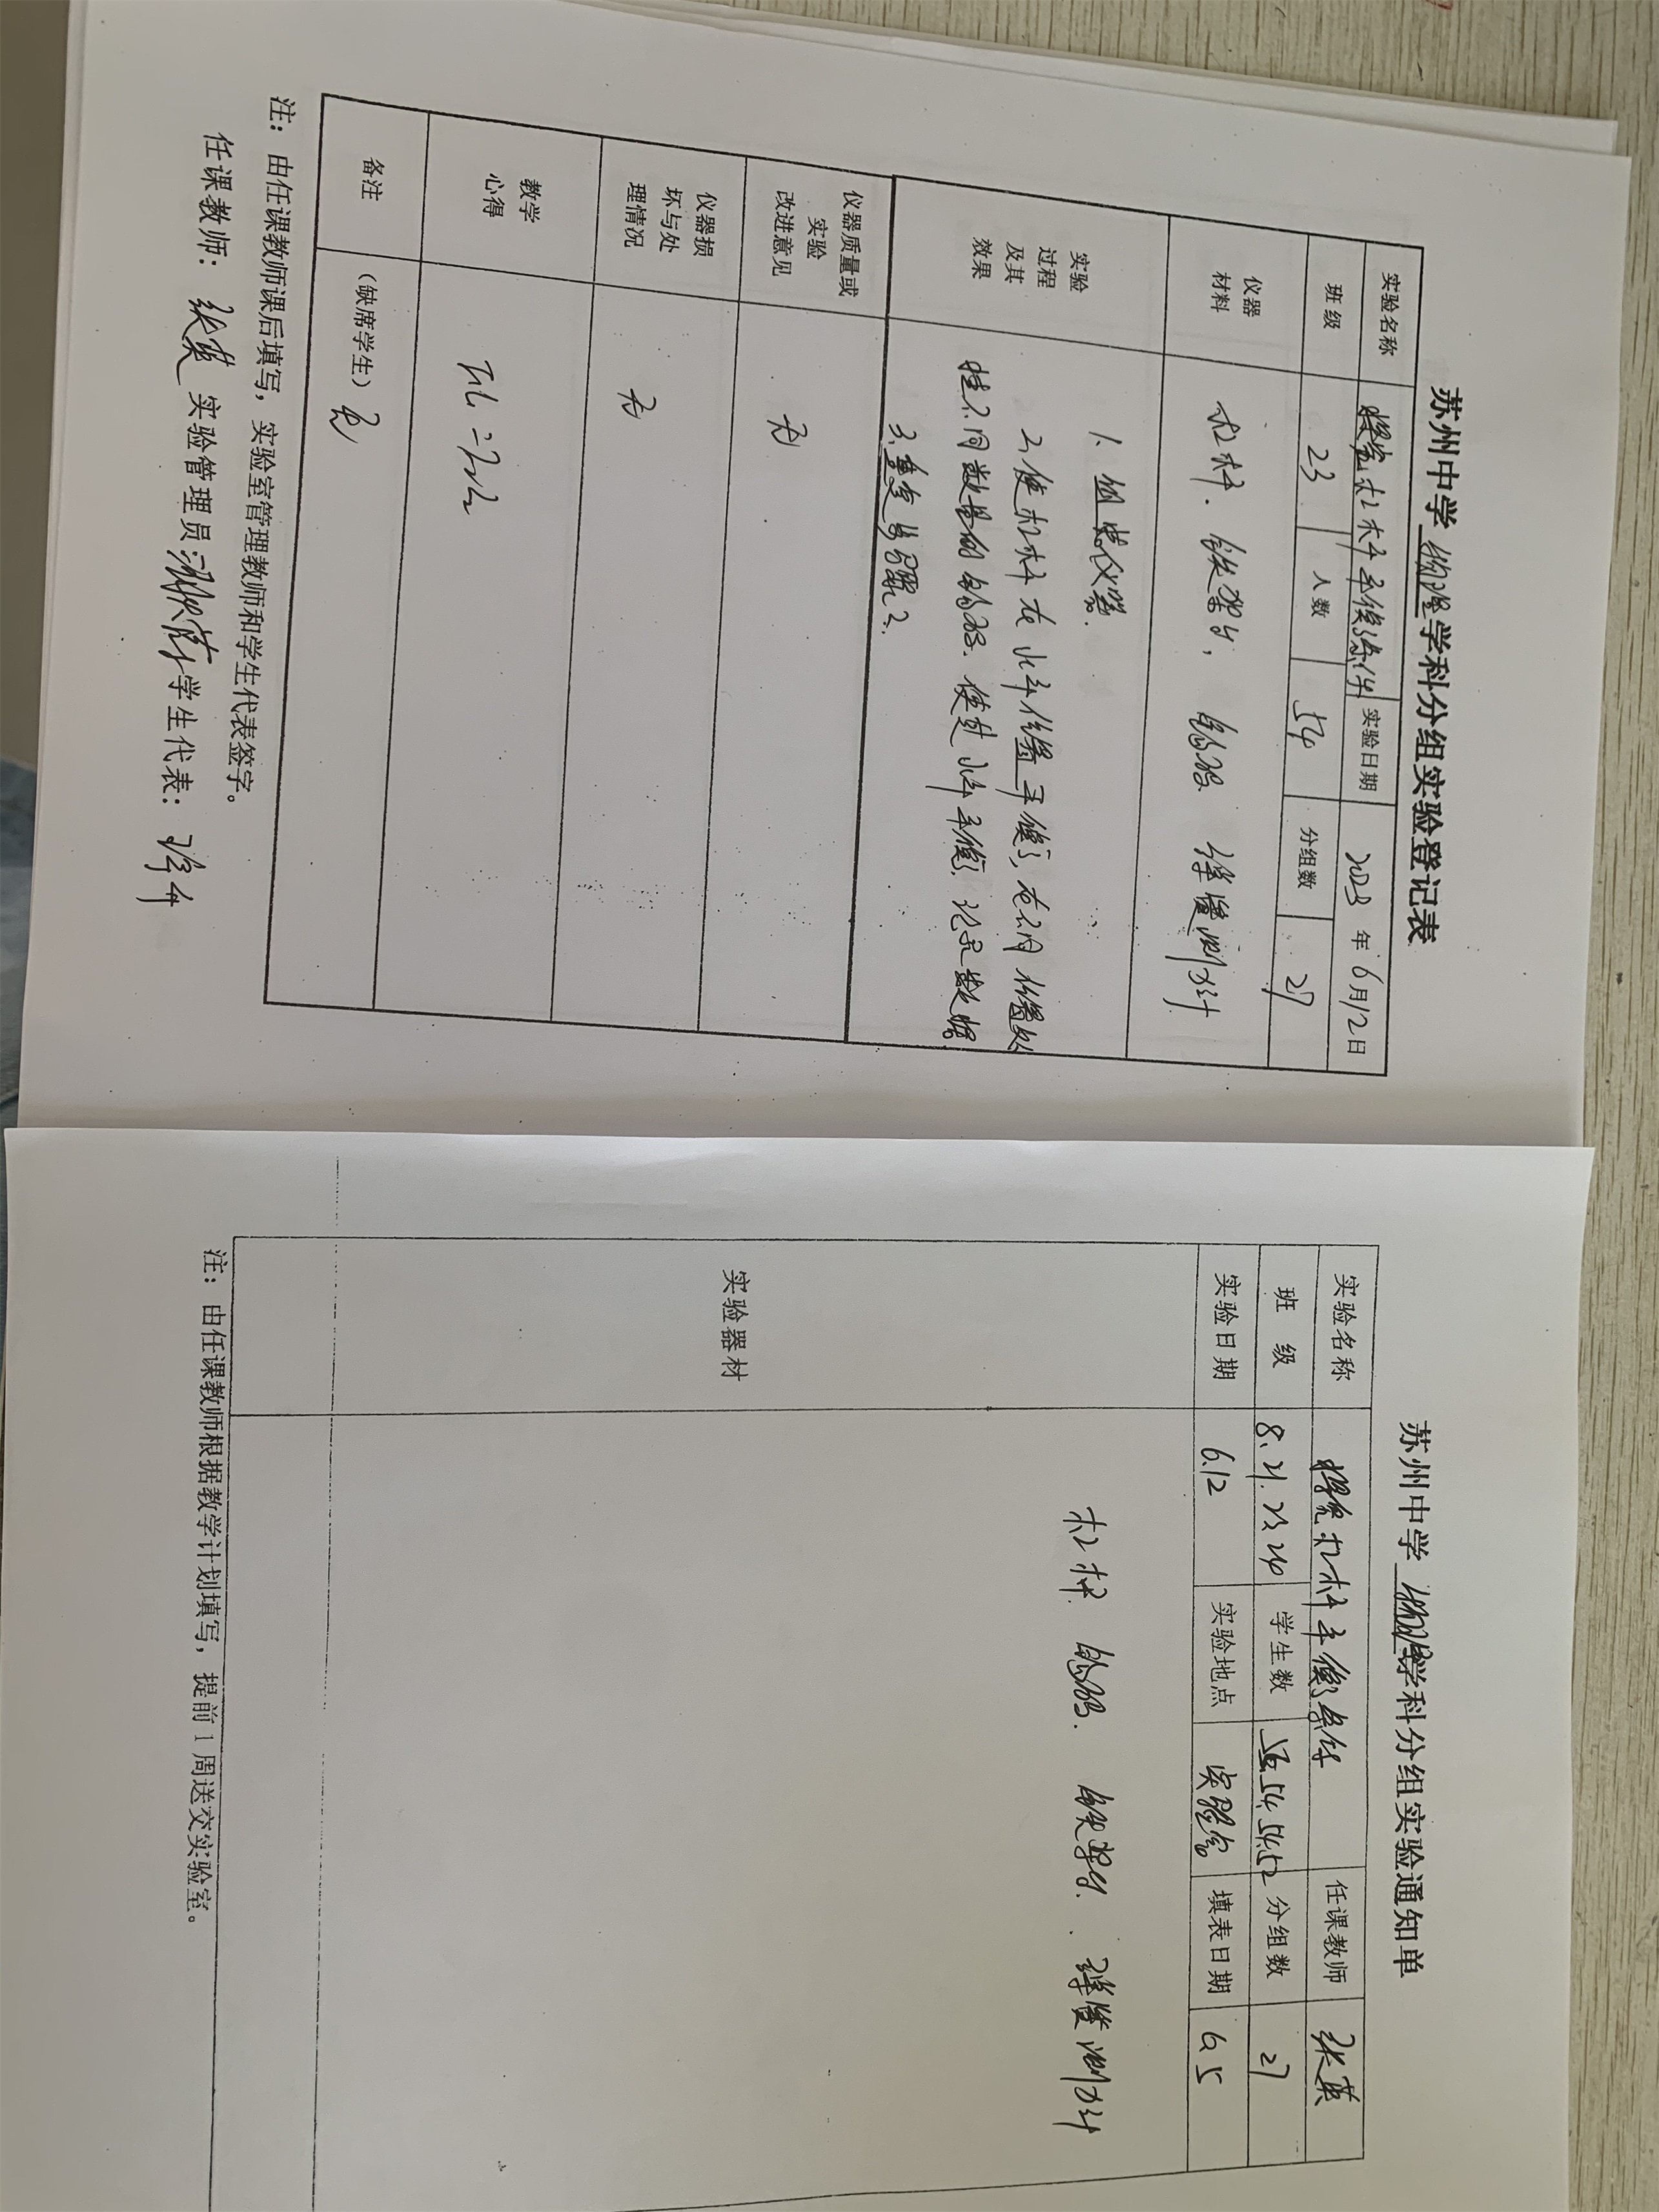 苏州中学物理学科分组实验登记表
实验名称 探究杠杆平衡条件 实验日期 2023年6月12日
班级 23 人数 54 分组数 27
仪器材料 杠杆、铁架台、钩码 弹簧测力计
实验过程及其效果 1、组装仪器
2、使杠杆在水平位置平衡,在不同位置处
挂不同数量的钩码,使其水平平衡,记录数据
3、重复步骤2.
仪器质量或实验改进意见 无
仪器损坏与处理情况 无
教学心得
备注 (缺席学生) 无
注:由任课教师课后填写,实验室管理教师和学生代表签字。
任课教师:张英 实验管理员: 学生代表:
苏州中学物理学科分组实验通知单
实验名称 探究杠杆平衡条件 任课教师 张英
班级 8、21、23、24 学生数 54、54、52 分组数 27
实验日期 6.12 实验地点 实验室 填表日期 6.5
实验器材 杠杆、钩码、铁架台、弹簧测力计
注:由任课教师根据教学计划填写,提前1周送交实验室。